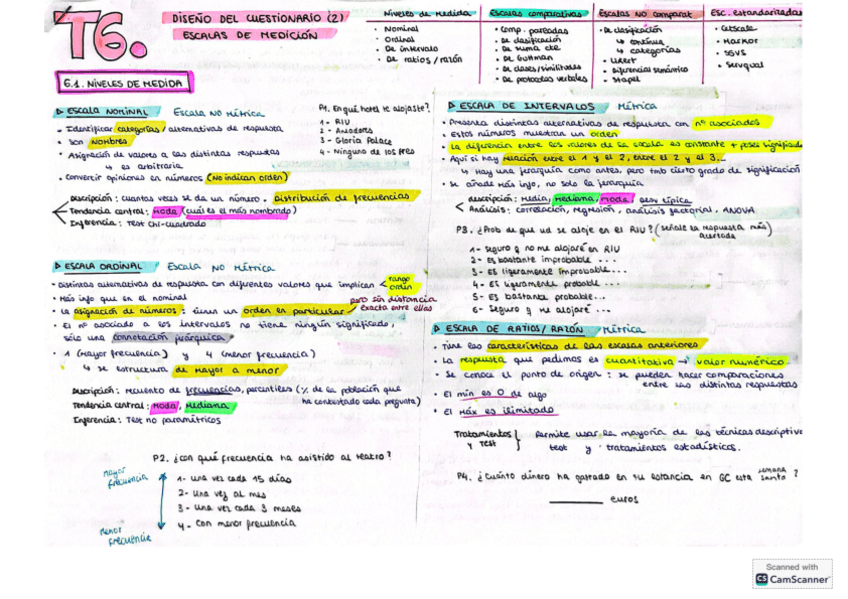 T6.
DISEÑO DEL CUESTIONARIO (2)
ESCALAS DE MEDICIÓN
Niveles de Medida
• Nominal
• Ordinal
• De intervalo
• De ratios / razón
Escalas comparativas
• Comp. pareadas
• De clasificación
• De suma cte
• De Gutman
• De clases/similitudes
• De protocolos verbales
Escalas NO comparat
• De clasificación
↳ continua
↳ categorías
• Likert
• Diferencial semántico
• Stapel
Esc. estandarizadas
• Cetscale
• Markor
• SSVS
• Servqual
6.1. NIVELES DE MEDIDA
▷ ESCALA NOMINAL Escala NO Métrica
• Identificar categorías / alternativas de respuesta
• Son NOMBRES
• Asignación de valores a las distintas respuestas
↳ es arbitraria
• Convertir opiniones en números (No indican orden)
Descripción: cuantas veces se da un número. Distribución de frecuencias
Tendencia central: Moda (cuál es el más nombrado)
Inferencia: Test Chi-cuadrado
P1. En qué hotel te alojaste?
1 - RIU
2 - Anadores
3 - Gloria Palace
4 - Ninguno de los tres
▷ ESCALA ORDINAL Escala NO Métrica
• Distintas alternativas de respuesta con diferentes valores que implican < rango orden
• Más info que en el nominal
• La asignación de números: tienen un orden en particular pero sin distancia exacta entre ellos
• El nº asociado a los intervalos no tiene ningún significado,
sólo una connotación jerárquica
• 1 (Mayor frecuencia) y 4 (menor frecuencia)
↳ se estructura de mayor a menor
Descripción: recuento de frecuencias, percentiles (% de la población que
ha contestado cada pregunta)
Tendencia central: Moda, Mediana
Inferencia: Test no paramétricos
P2. ¿con qué frecuencia ha asistido al teatro?
mayor frecuencia
1- una vez cada 15 días
2- una vez al mes
3 - una vez cada 3 meses
4 - con menor frecuencia
menor frecuencia
▷ ESCALA DE INTERVALOS Métrica
• Presenta distintas alternativas de respuesta con nº asociados
• Estos números muestran un orden
• La diferencia entre los valores de la escala es constante + posee significado
• Aquí si hay relación entre el 1 y el 2, entre el 2 y el 3...
↳ Hay una jerarquía como antes, pero tmb cierto grado de significación
• Se añade más info, no solo la jerarquía
Descripción: Media, Mediana, Moda, Desv típica
Análisis: correlación, regresión, análisis factorial, ANOVA
P3. ¿Prob de que ud se aloje en el RIU? (señale la respuesta más acertada)
1- Seguro q no me alojaré en RIU
2- Es bastante improbable ...
3- Es ligeramente improbable...
4- Es ligeramente probable...
5- Es bastante probable...
6- Seguro q me alojaré ...
▷ ESCALA DE RATIOS/RAZÓN Métrica
• Tiene las características de las escalas anteriores
• La respuesta que pedimos es cuantitativa → valor numérico
• Se conoce el punto de origen: se pueden hacer comparaciones
entre las distintas respuestas
• El min es 0 de algo
• El Máx es ilimitado
Tratamientos y Test } Permite usar la mayoría de las técnicas descriptiv
test y tratamientos estadísticos.
P4. ¿Cuánto dinero ha gastado en su estancia en GC esta semana santa?
________ euros
Scanned with
CS CamScanner